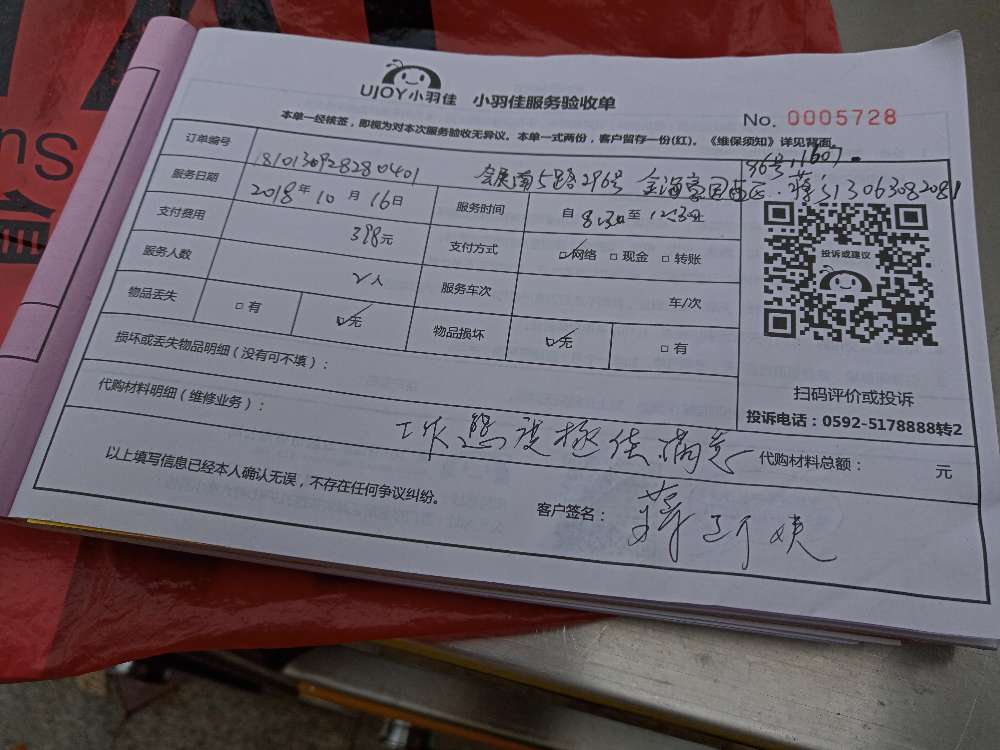 UJOY小羽佳 小羽佳服务验收单
No. 0005728
本单一经核签，即视为对本次服务验收无异议。本单一式两份，客户留存一份(红)。《维保须知》详见背面。
36号,1607
订单编号 810130928280401 会展南5路296号 金海豪园西区 蒋 13063082081
服务日期 2018年10月16日 服务时间 自8:30至12:30止
支付费用 398元 支付方式 网络 现金 转账
服务人数 2人 服务车次 车/次
物品丢失 有 无 物品损坏 无 有
投诉或建议
损坏或丢失物品明细（没有可不填）：
扫码评价或投诉
投诉电话：0592-5178888转2
代购材料明细（维修业务）：
工作态度极佳满意 代购材料总额： 元
以上填写信息已经本人确认无误，不存在任何争议纠纷。
客户签名： 蒋
Sun
信